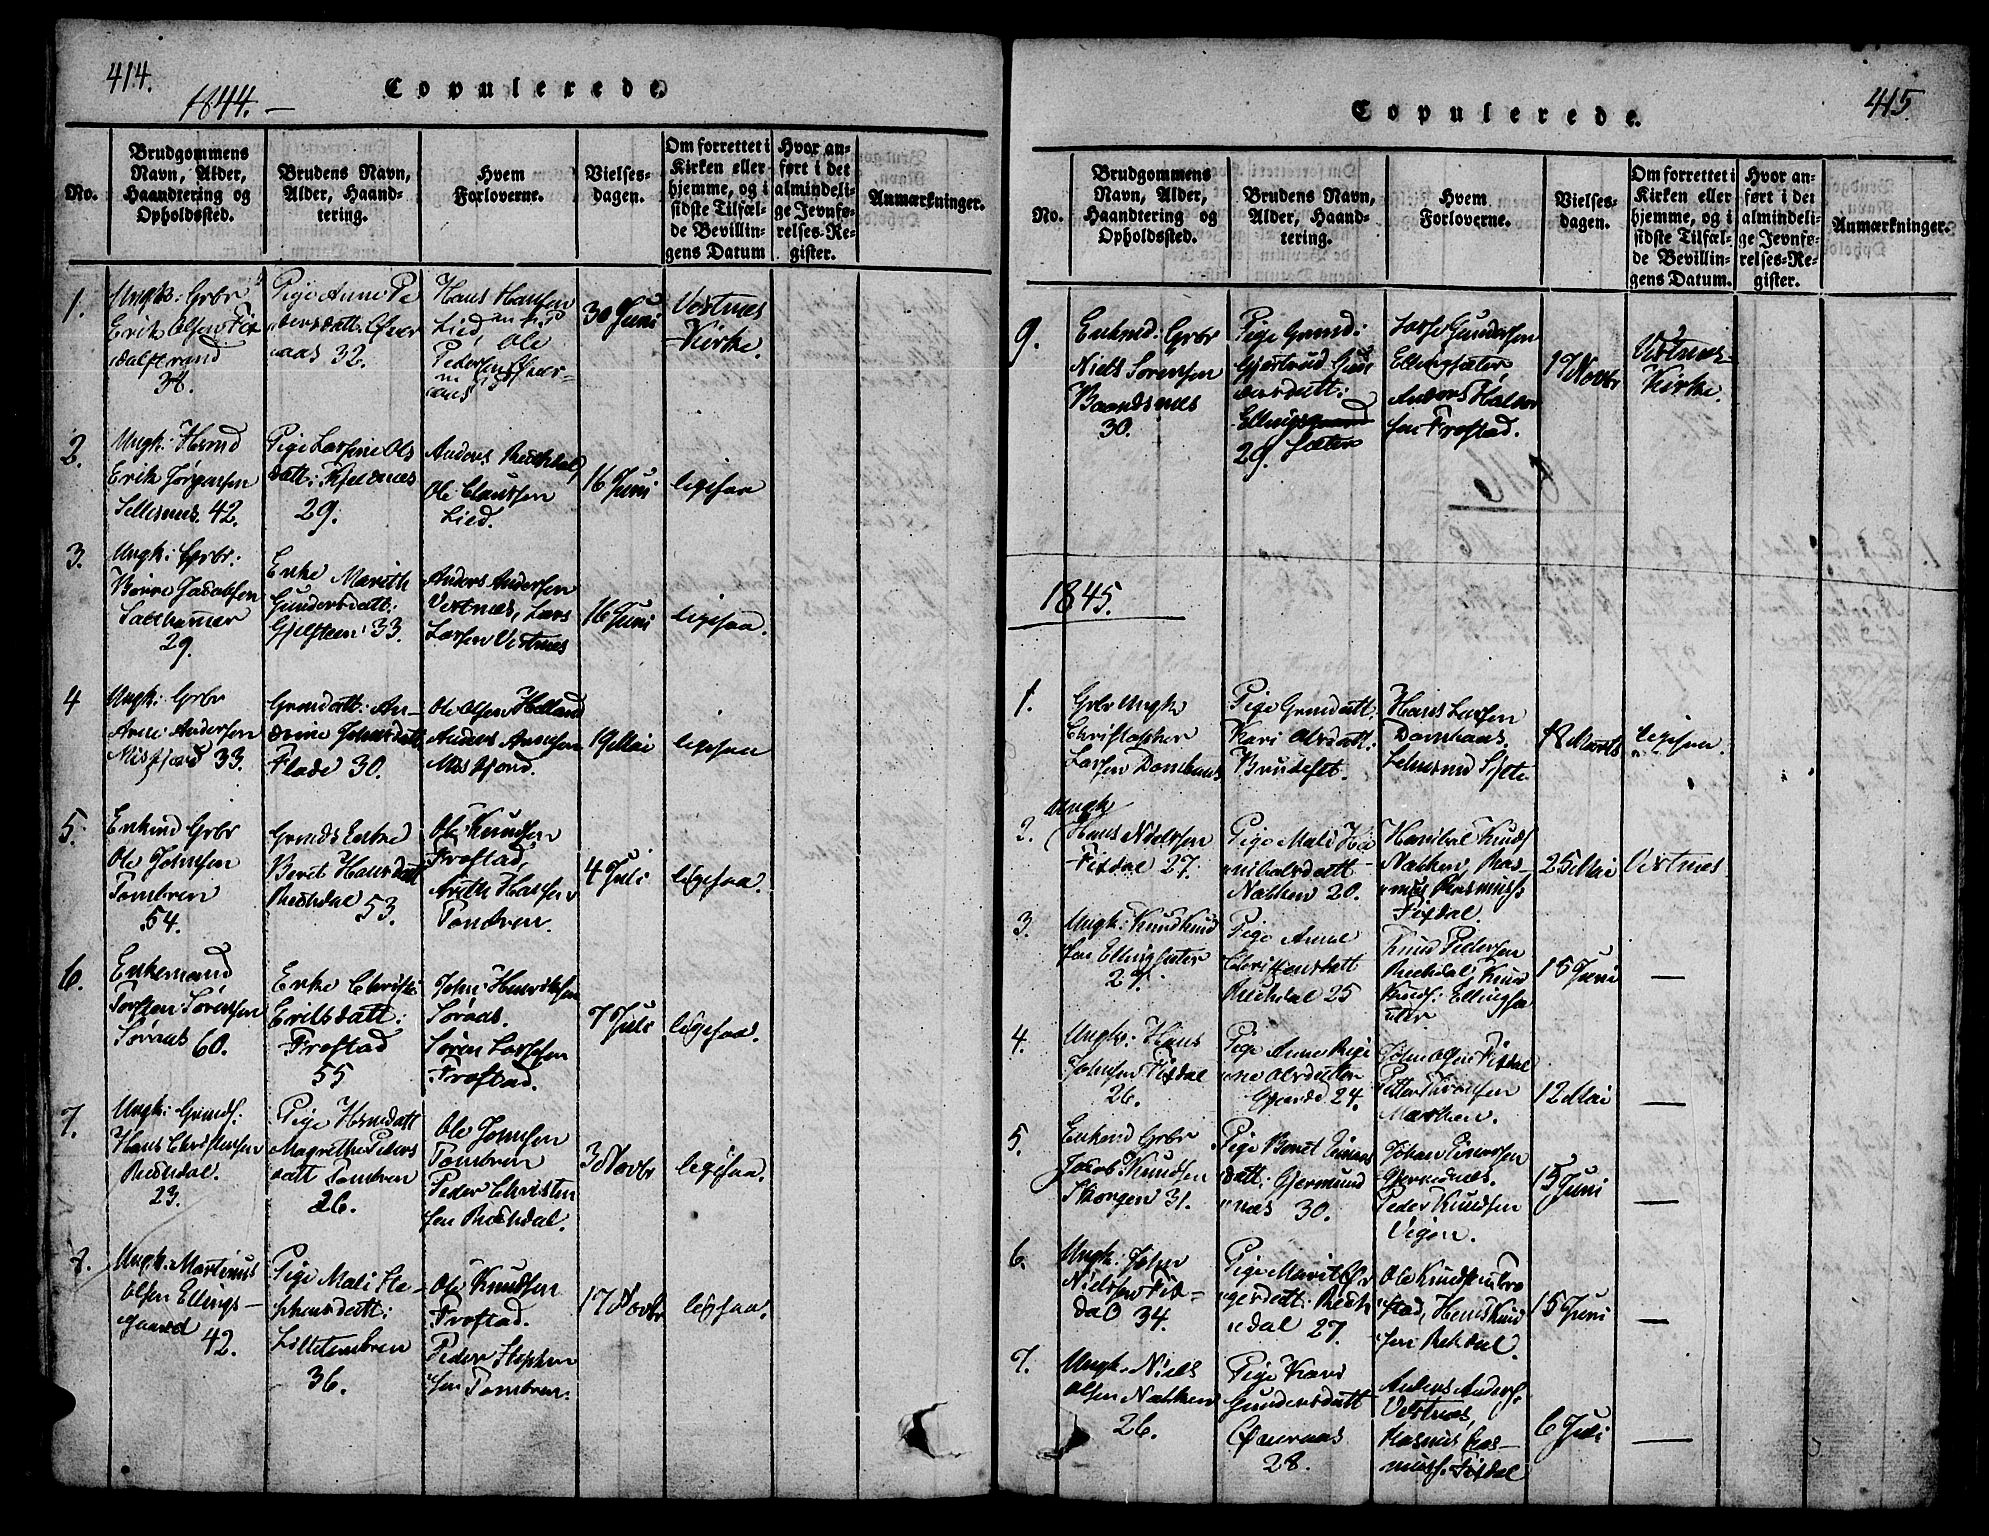 414.
1844. —
Copulerede.
No.
Brudgommens
Navn, Alder,
Haandtering og
Opholdssted.
Brudens Navn,
Alder, Haand-
tering.
Hvem
Forloverne.
Vielses-
dagen.
Om forrettet i
Kirken eller
hjemme, og i
sidste Tilfæl-
de Bevillin-
gens Datum
Hvor an-
ført i det
almindeli-
ge Jevnfø-
relses-Re-
gister.
Anmærkninger.
1.
Ungk: Grbr
Erik Olsen
38.
Pige Anne Pe
dersdatt:
aas 32.
Hans Hansen
Lied
Ole
Pedersen
30 Juni
Vestnes
Kirke.
2.
Ungk: Hsmd
Erik Jørgensen
Sellesnes. 42.
Pige Lassine Ols
datt: Kjeldnes
29.
Anders Rechdal
Ole Claussen
Lied.
16 Juni
ligesaa
3.
Ungk: Grbr.
Børre Jacobsen
Salthamer
29.
Enke Marith
Gundersdatt:
Gjelsteen 33.
Anders Andersen
Vestnæs, Lars
Larsen Vestnæs
16 Juni
ligesaa.
4
Ungk: Grbr
Arne Andersen
Misfjord 33.
Grmdatt: An-
drine Johnsdatt
Flade 30.
Ole Olsen Helland
Anders Arnesen
Misfjord.
19 Mai
ligesaa
5.
Enkmd Grbr
Ole Johnsen
Tombren
54.
Grmds Enke
Berit Hansdatt
Rechdal 53.
Ole Knudsen
Frostad,
Hansen
Tombren.
4 Juli
ligesaa.
6.
Enkemand
Torsten Sørensen
Søraas 60.
Enke Christi
Erilsdatt:
Frostad
55
John
Søraas.
Søren Larsen
Frostad.
7 Juli
ligesaa.
7.
Ungk: Grmds.
Hans Christensen
Rechdal.
23.
Pige Hsmdatt
Magrethe Peders
datt Tombren
26.
Ole Johnsen
Tombren
Peder Christen
sen Rechdal.
3 Novbr
ligesaa.
8.
Ungk: Martinus
Olsen Ellings-
gaard 42.
Pige Mali Ste-
phensdatt:
Lilletombren
36.
Ole Knudsen
Frostad.
Peder Stephen
sen Tombren.
17 Novbr
ligesaa.
415.
Copulerede.
No.
Brudgommens
Navn, Alder,
Haandtering og
Opholdssted.
Brudens Navn,
Alder, Haand-
tering.
Hvem
Forloverne.
Vielses-
dagen.
Om forrettet i
Kirken eller
hjemme, og i
sidste Tilfæl-
de Bevillin-
gens Datum.
Hvor an-
ført i det
almindeli-
ge Jevnfø-
relses-Re-
gister.
Anmærkninger.
9.
Enkmd. Grbr
Niels Sørensen
Baardsnes
30.
Pige Grmd:
Gjertrud Gun
dersdatt:
Ellingsgaard
29. Sæter
Lasse Gundersen
Ellingsæter
Anders Halvor
sen Frostad.
17 Novbr
Vestnes
Kirke.
1845.
1.
Grbr Ungk
Christopher
Larsen
Pige Grmdatt.
Kari Olsdatt:
Brudeset.
Hans Larsen
18 Marts
ligesaa.
2.
Ungk
Hans Nielssen
Fixdal 27.
Pige Mali Ha
nibalsdatt
Nakken 20.
Hanibal Knuds
Nakken, Ras-
mus Rasmuss
Fixdal.
25 Mai
Vestnes
3.
Ungk: Knud Knud
sen Ellingsæter
27.
Pige Anne
Christensdatt
Rechdal 25
Knud Pedersen
Rechdal, Knud
Knuds: Ellingsæ
ter
15 Juni
—
4.
Ungk: Hans
Johnsen Fixdal
26.
Pige Anne Regi
ne Olsdatter
Gjerde 24.
John Olsen Fixdal
Petter
12 Mai
—
5.
Enkmd Grbr
Jacob Knudsen
Skorgen 31.
Pige Beret Einars
datt: Gjermund
nes 30.
Johan Einersen
Gjermdnæs.
Peder Knudsen
15 Juni
—
6.
Ungk: John
Nielsen Fix-
dal 34.
Pige Marit
gersdatt: Rech
dal 27.
Ole Knudsen Fro
stad, Hans Knud
sen Rekdal.
15 Juni
—
7.
Ungk. Niels
Olsen Nakken
26.
Pige Kari
Gundersdatt
Øveraas
28.
Anders Anders.
Vestnæs,
Rasmus Ras-
muss. Fixdal
6 Juli
—